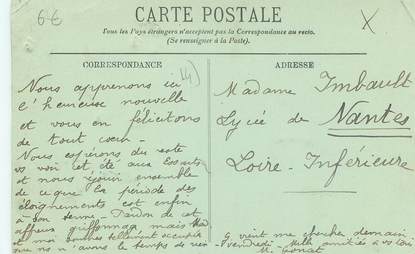 6€
X
CARTE POSTALE
Tous les Pays étrangers n'acceptent pas la Correspondance au recto.
(Se renseigner à la Poste).
CORRESPONDANCE
ADRESSE
Nous apprenons ici
l'heureuse nouvelle
et vous en félicitons
de tout cœur.
Nous espérons du reste
vs voir cet été aux
et nous réjouir ensemble
de ce que la période des
éloignements est enfin
à son terme - Pardon de cet
affreux griffonnage mais
et moi sommes tellement occupés
que ns n'avons le temps de rien
Madame Imbault
Lycée de Nantes
Loire-Inférieure
vient me chercher demain
vendredi - Mille amitiés à vs tous